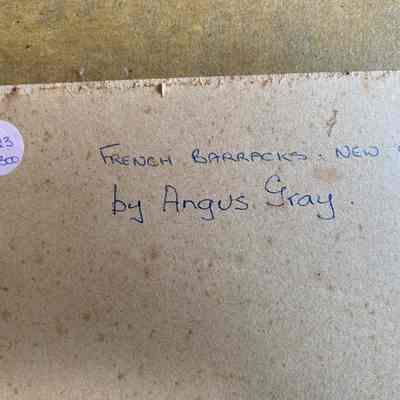 23
300
FRENCH BARRACKS. NEW
by Angus Gray.